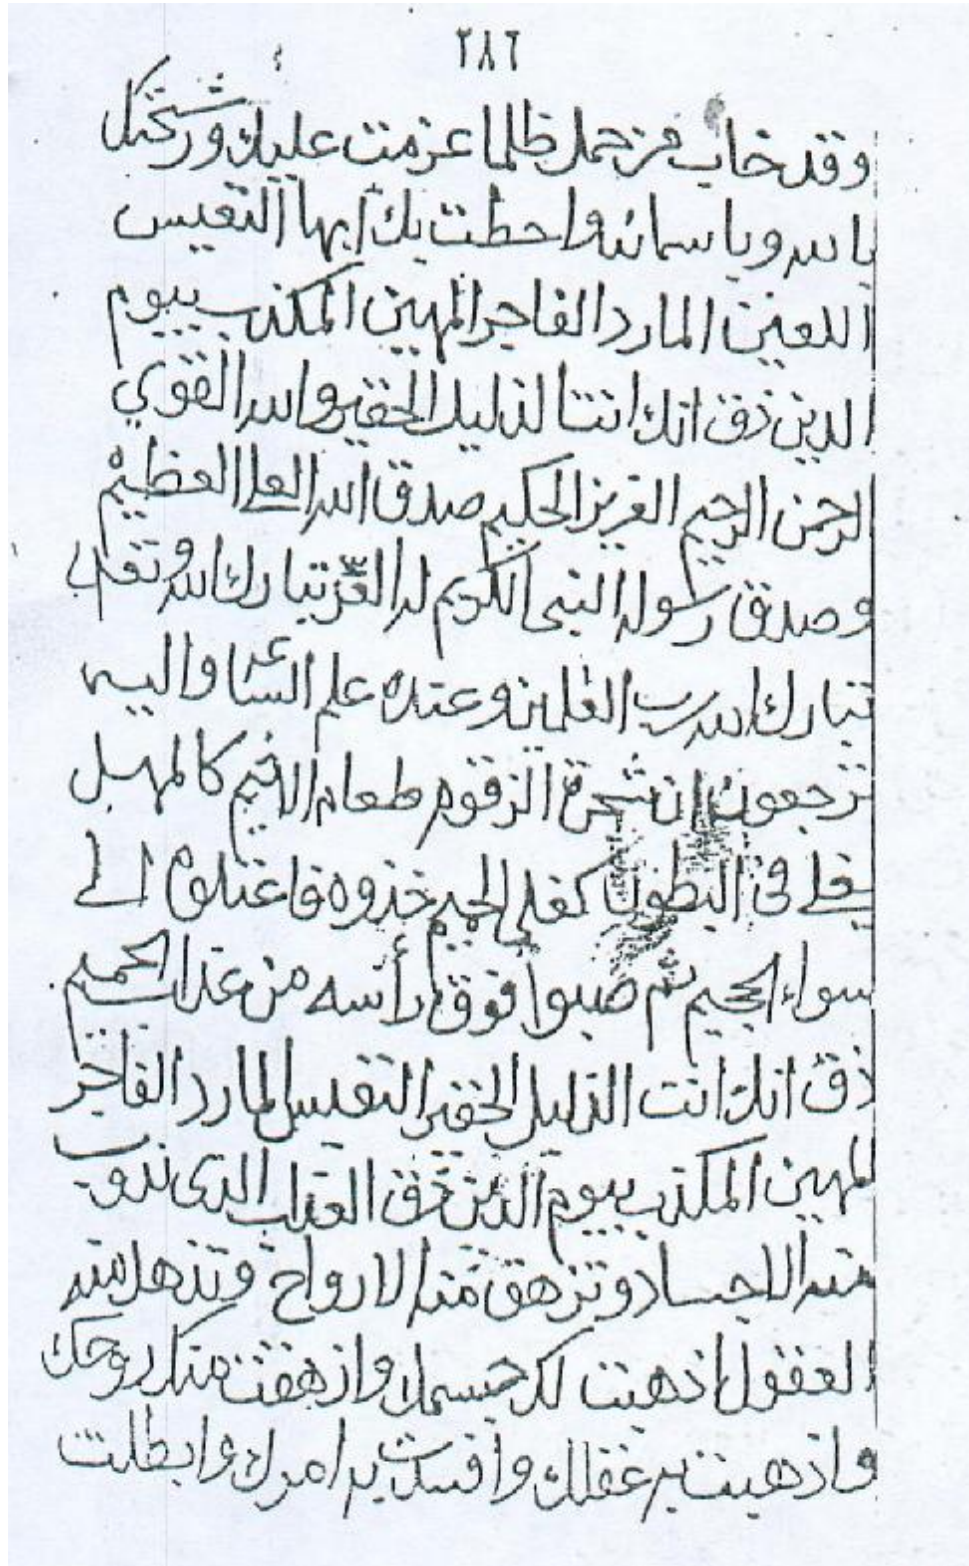 ٢٨٦
وقد خاب من حمل ظلما عزمت عليك وزشختك
بالله وباسمائه واحطت بك ايها التعيس
اللعين المارد الفاجر المهين المكذب بيوم
الدين ذق انك انت الذليل الحقير والله القوي
الرحمن الرحيم العزيز الحكيم صدق الله العلي العظيم
وصدق رسوله النبى الكريم له العز تبارك الله وتعلى
تبارك الله رب العلمين وعنده علم الساعة واليه
ترجعون ان شجرة الزقوم طعام الاثيم كالمهل
يغلي فى البطون كغلي الحميم خذوه فاعتلوه الى
سواء الجحيم ثم صبوا فوق رأسه من عذاب الحميم
ذق انك انت الذليل الحقير التعيس المارد الفاجر
المهين المكذب بيوم الدين ذق العذاب الذى تذوب
منه الاجساد وتزهق منه الارواح وتذهل منه
العقول اذهبت لك جسمك وازهقت منك روحك
واذهبت به عقلك وافسدت به امرك وابطلت